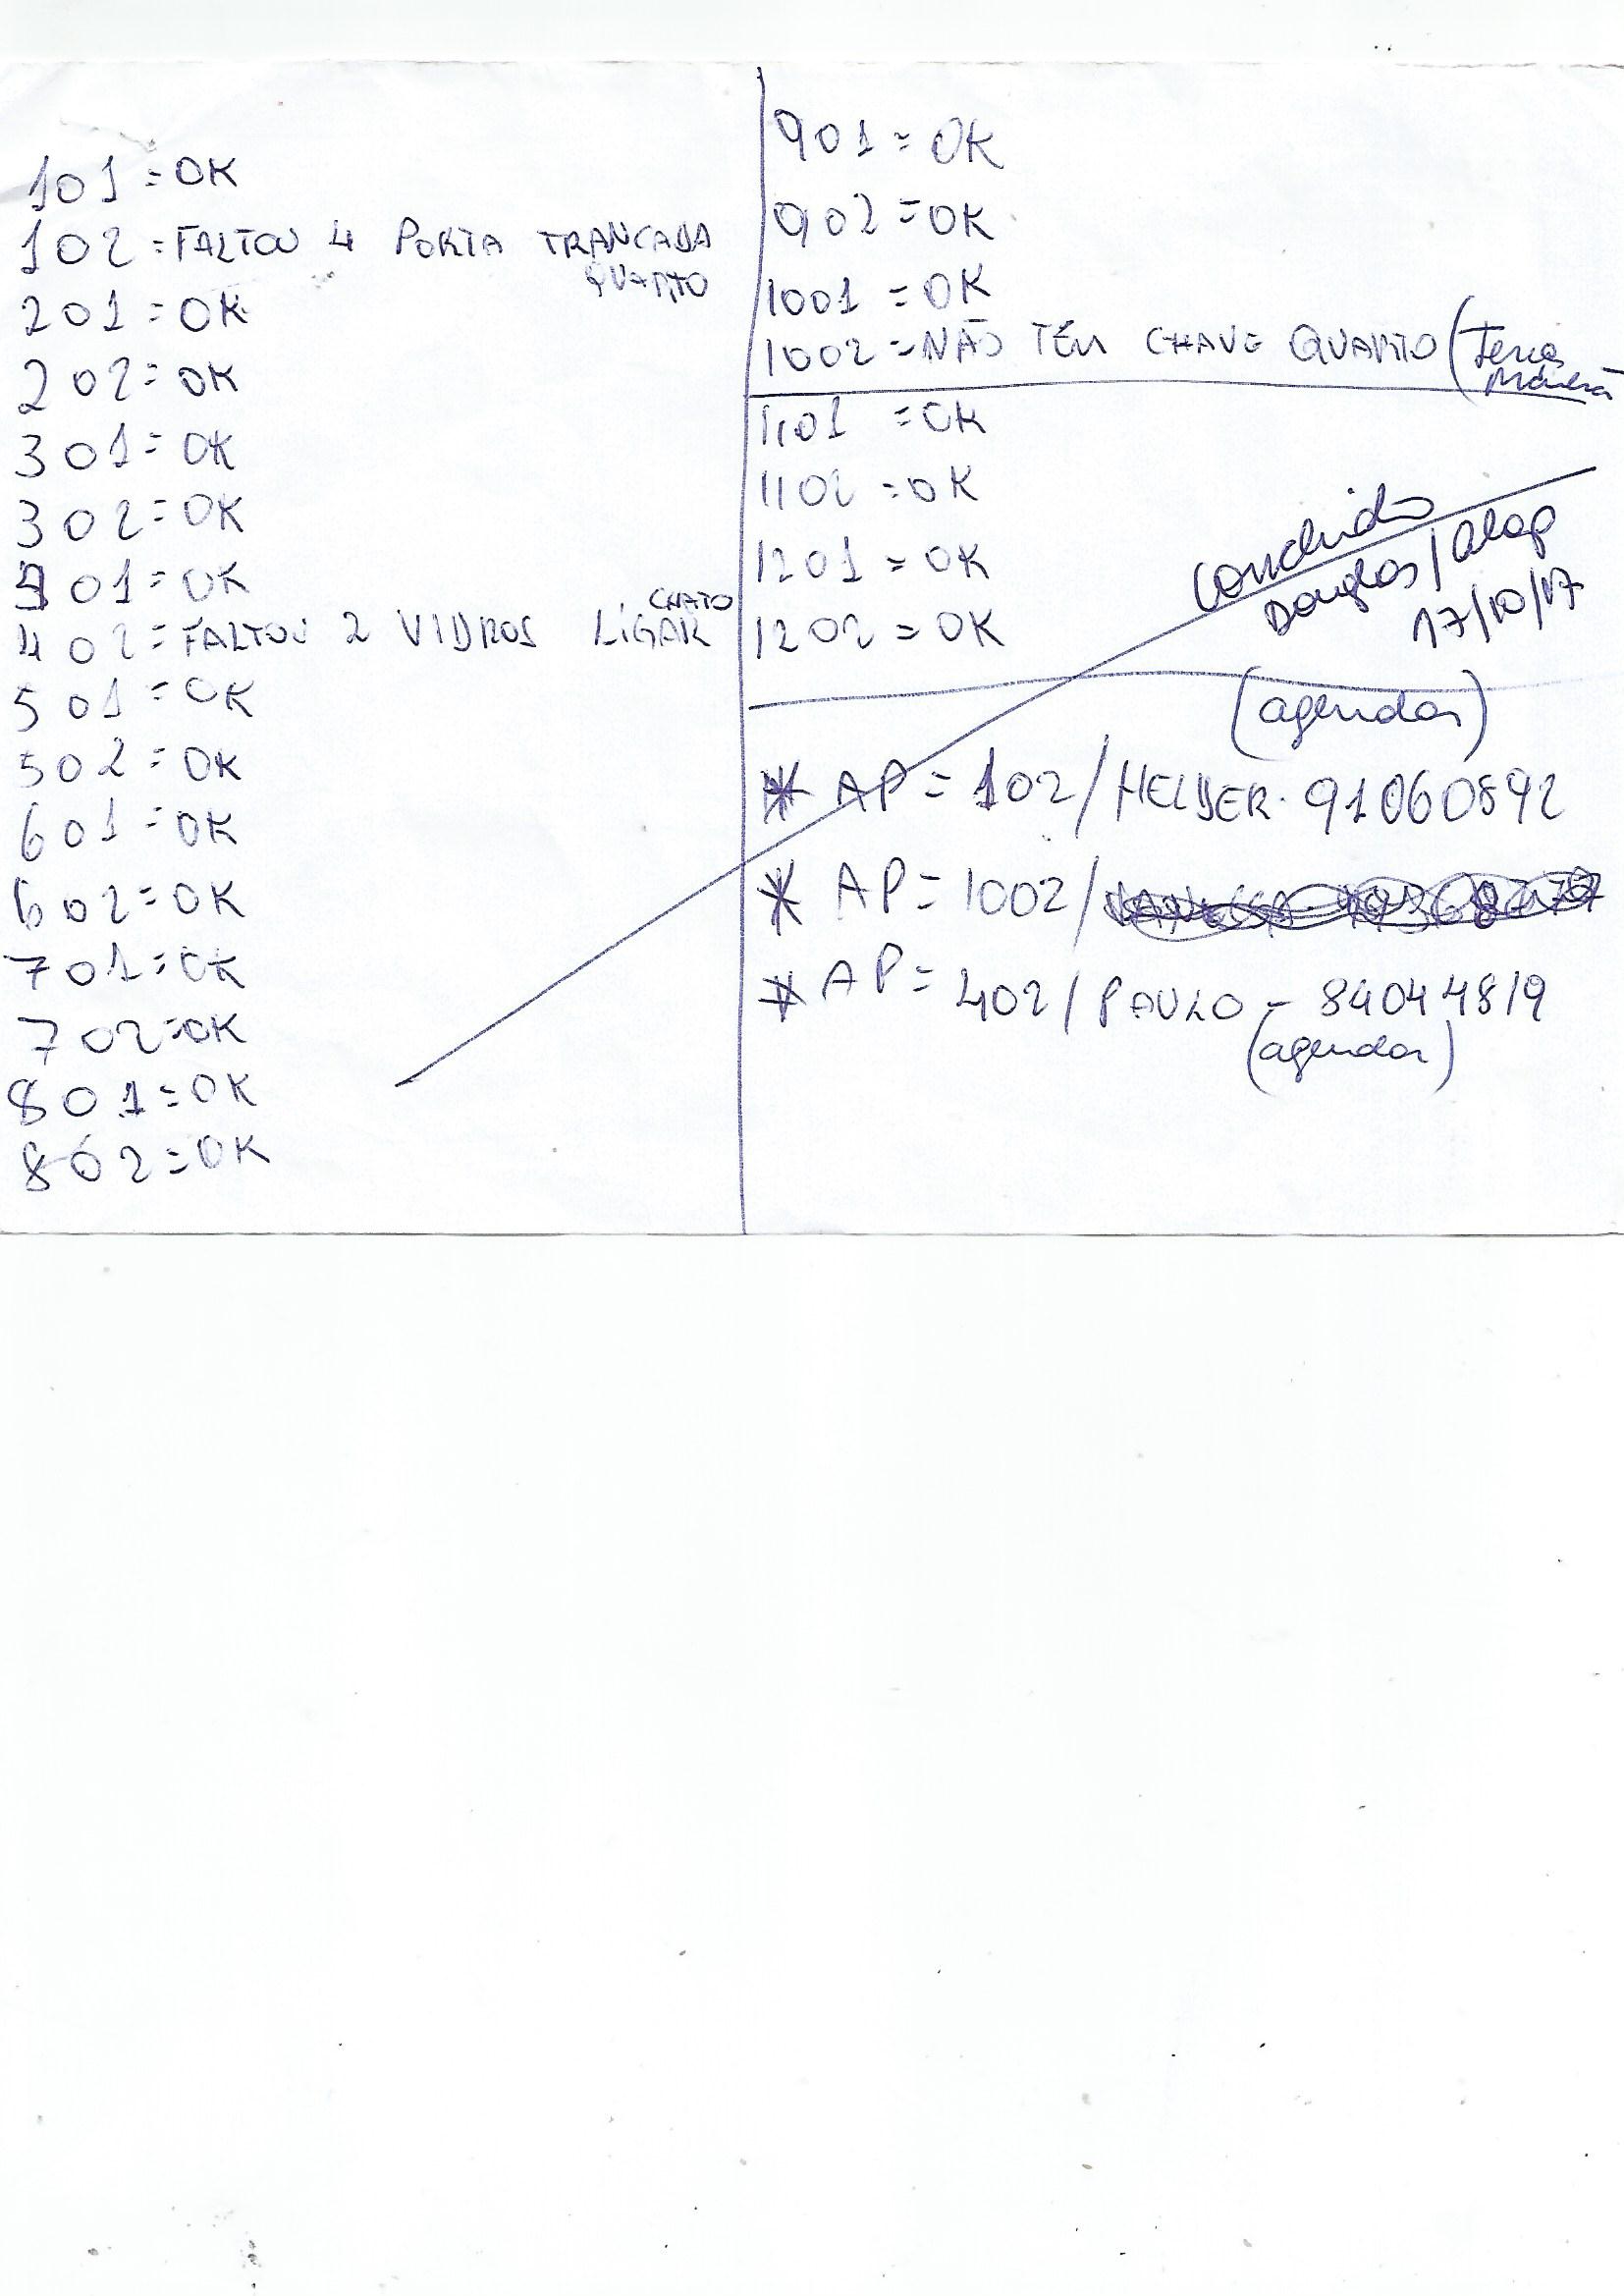 101 = OK
102 = FALTOU 4 PORTA TRANCADA
QUARTO
201 = OK
202 = OK
301 = OK
302 = OK
401 = OK
402 = FALTOU 2 VIDROS LIGAR
CHATO
501 = OK
502 = OK
601 = OK
602 = OK
701 = OK
702 = OK
801 = OK
802 = OK
901 = OK
902 = OK
1001 = OK
1002 = NÃO TÊM CHAVE QUARTO (Terça
1101 = OK
1102 = OK
1201 = OK
1202 = OK
Concluído
Douglas /
17/10/17
(agendar)
* AP = 102 / HELDER. 91060892
* AP = 1002 /
* AP = 402 / PAULO - 84044819
(agendar)